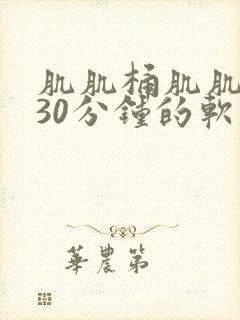 肌肌桶肌肌
30分鍾的軟
華農第